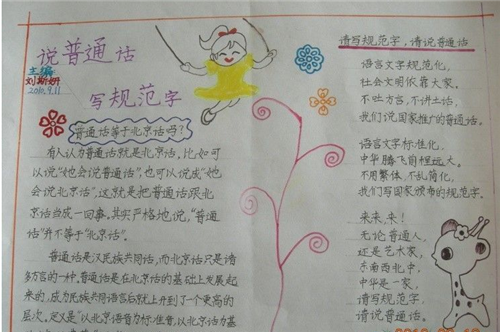 说普通话
主编
刘斯妍
2010.9.11
写规范字
普通话等于北京话吗?
有人认为普通话就是北京话,比如可
以说"她会说普通话",也可以说成"她
会说北京话"。这就是把普通话跟北
京话当成一回事,其实严格地说,"普通
话"并不等于"北京话"。
普通话是汉民族共同话,而北京话只是诸
多方言的一种。普通话是在北京话的基础上发展起
来的,成为民族共同语言后就上升到了一个更高的
层次。定义是"以北京语音为标准音,以北京话为基
请写规范字,请说普通话
语言文字规范化,
社会文明依靠大家。
不吐方言,不讲土话,
我们说国家推广的普通话。
语言文字标准化,
中华腾飞前程远大。
不用繁体,不乱简化,
我们写国家颁布的规范字。
来来,来!
无论普通人,
还是艺术家,
东南西北中,
中华是一家,
请写规范字,
请说普通话